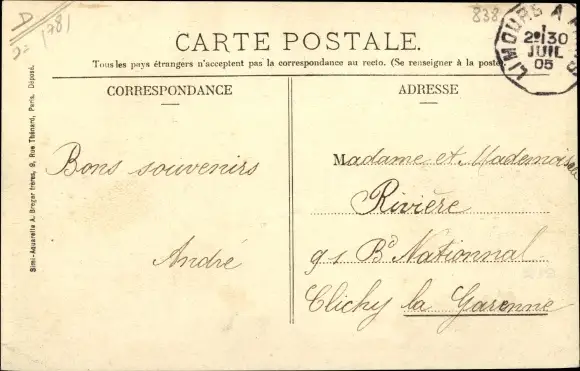 D
1781
838
CARTE POSTALE.
Tous les pays étrangers n'acceptent pas la correspondance au recto. (Se renseigner à la poste)
LIMOURS A
2e/30
JUIL
05
CORRESPONDANCE
ADRESSE
Simi-Aquarelle A. Breger frères, 9, Rue Thénard, Paris. Déposé.
Bons souvenirs
André
Madame et Mademoiselle
Rivière
91 Bd Nationnal
Clichy la Garenne